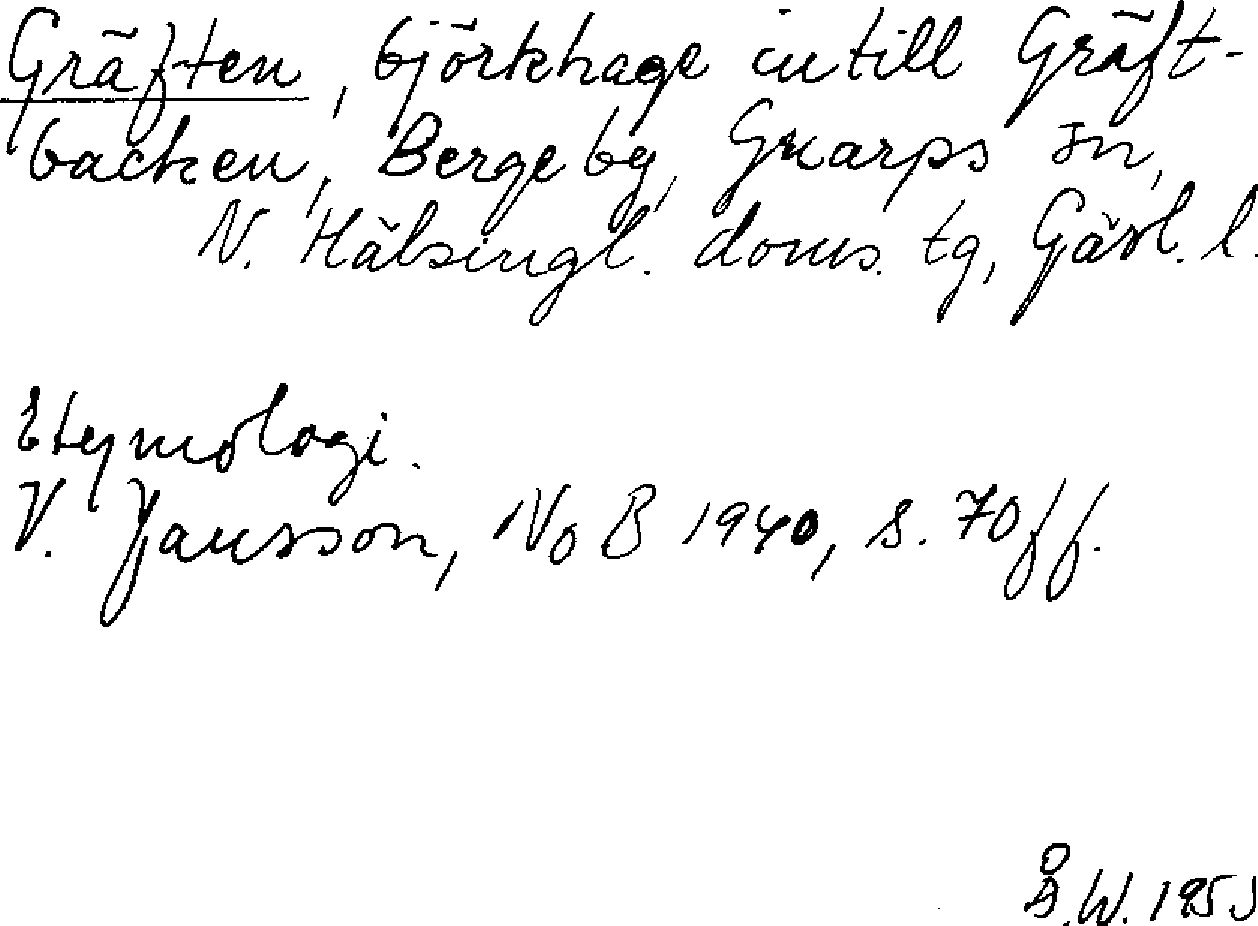 Gräften, björkhage intill Gräft-
backen, Berge by, Gnarps sn,
N. Hälsingl. doms. tg, Gävl. l.
Etymologi.
V. Jansson, NoB 1940, s. 70 ff.
Å.W. 195